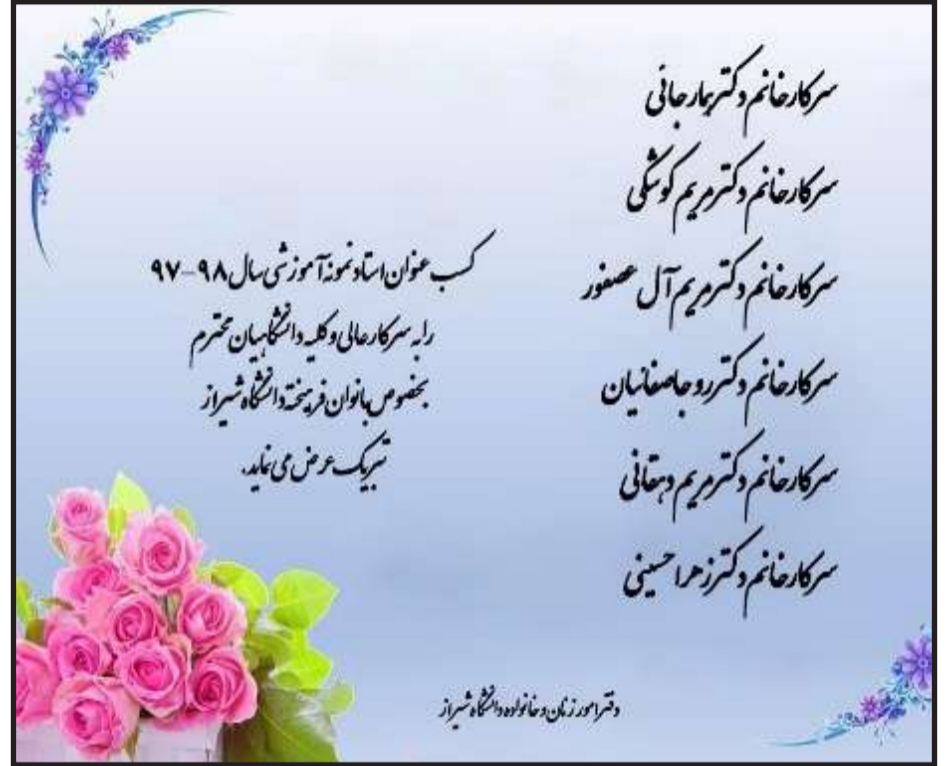 سرکار خانم دکتر بهار جانی
سرکار خانم دکتر مریم کوشکی
سرکار خانم دکتر مریم آل عصفور
سرکار خانم دکتر روجا صفائیان
سرکار خانم دکتر مریم دهقانی
سرکار خانم دکتر زهرا حسینی
کسب عنوان استاد نمونه آموزشی سال ۹۸-۹۷
را به سرکار عالی و کلیه دانشگاهیان محترم
بخصوص بانوان فرهیخته دانشگاه شیراز
تبریک عرض می نماید.
دفتر امور زنان و خانواده دانشگاه شیراز